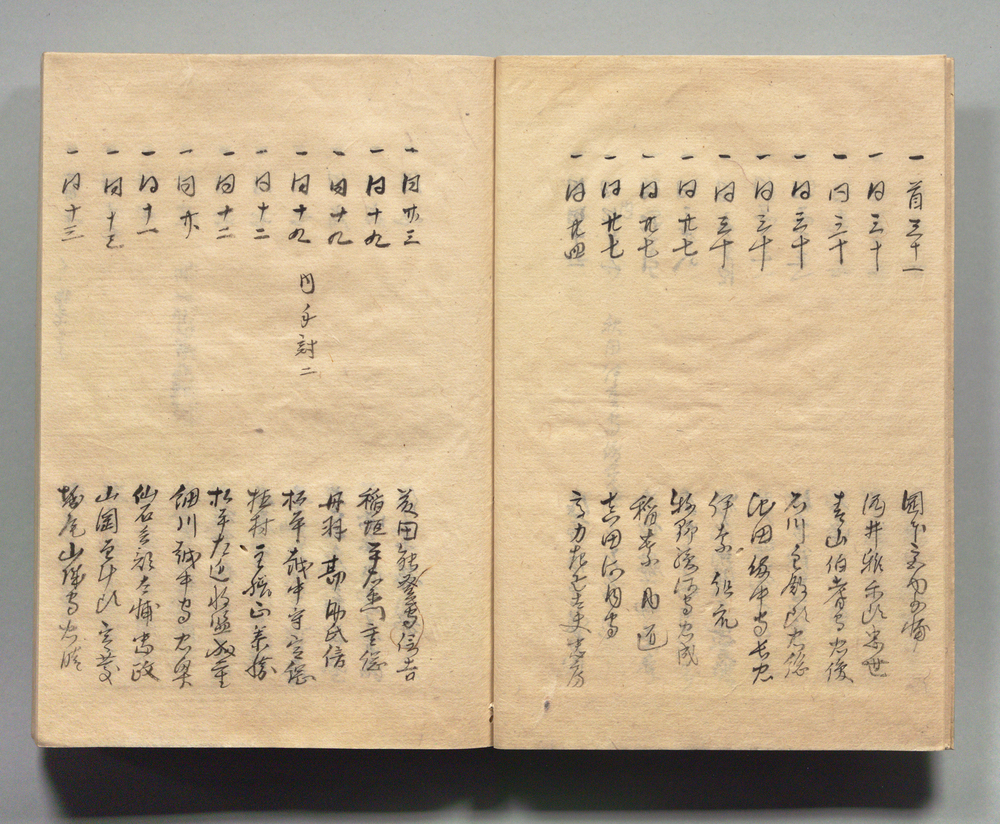 一 首三十一 岡部内膳
一 同三十 酒井雅楽頭忠世
一 同三十 青山伯耆守忠俊
一 同三十 石川主殿頭忠総
一 同三十 池田備中守長忠
一 同三十 伊奈
一 同廿七 牧野駿河守忠成
一 同廿七 稲葉 内 通
一 同廿七 真田河内守
一 同廿四 高力左近大夫忠房
一 同廿三 信吉
一 同十九 稲垣平右衛門重綱
一 同十九 丹羽勘助氏信
一 同十九 内手討二 松平越中守定綱
一 同十二 植村主膳正泰勝
一 同十二 松平左近将監成重
一 同廿 細川越中守忠興
一 同十一 仙石兵部大輔忠政
一 同十三 山岡主計頭
一 同十三 堀尾山城守忠晴